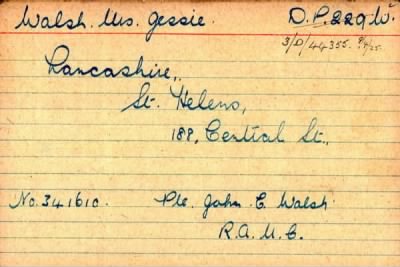 Walsh. Mrs. Jessie. D.P. 229.W.
3/D/44355. 9/7/25.
Lancashire,
St. Helens,
188, Central St.,
No. 341610. Pte. John E. Walsh
R.A.M.C.